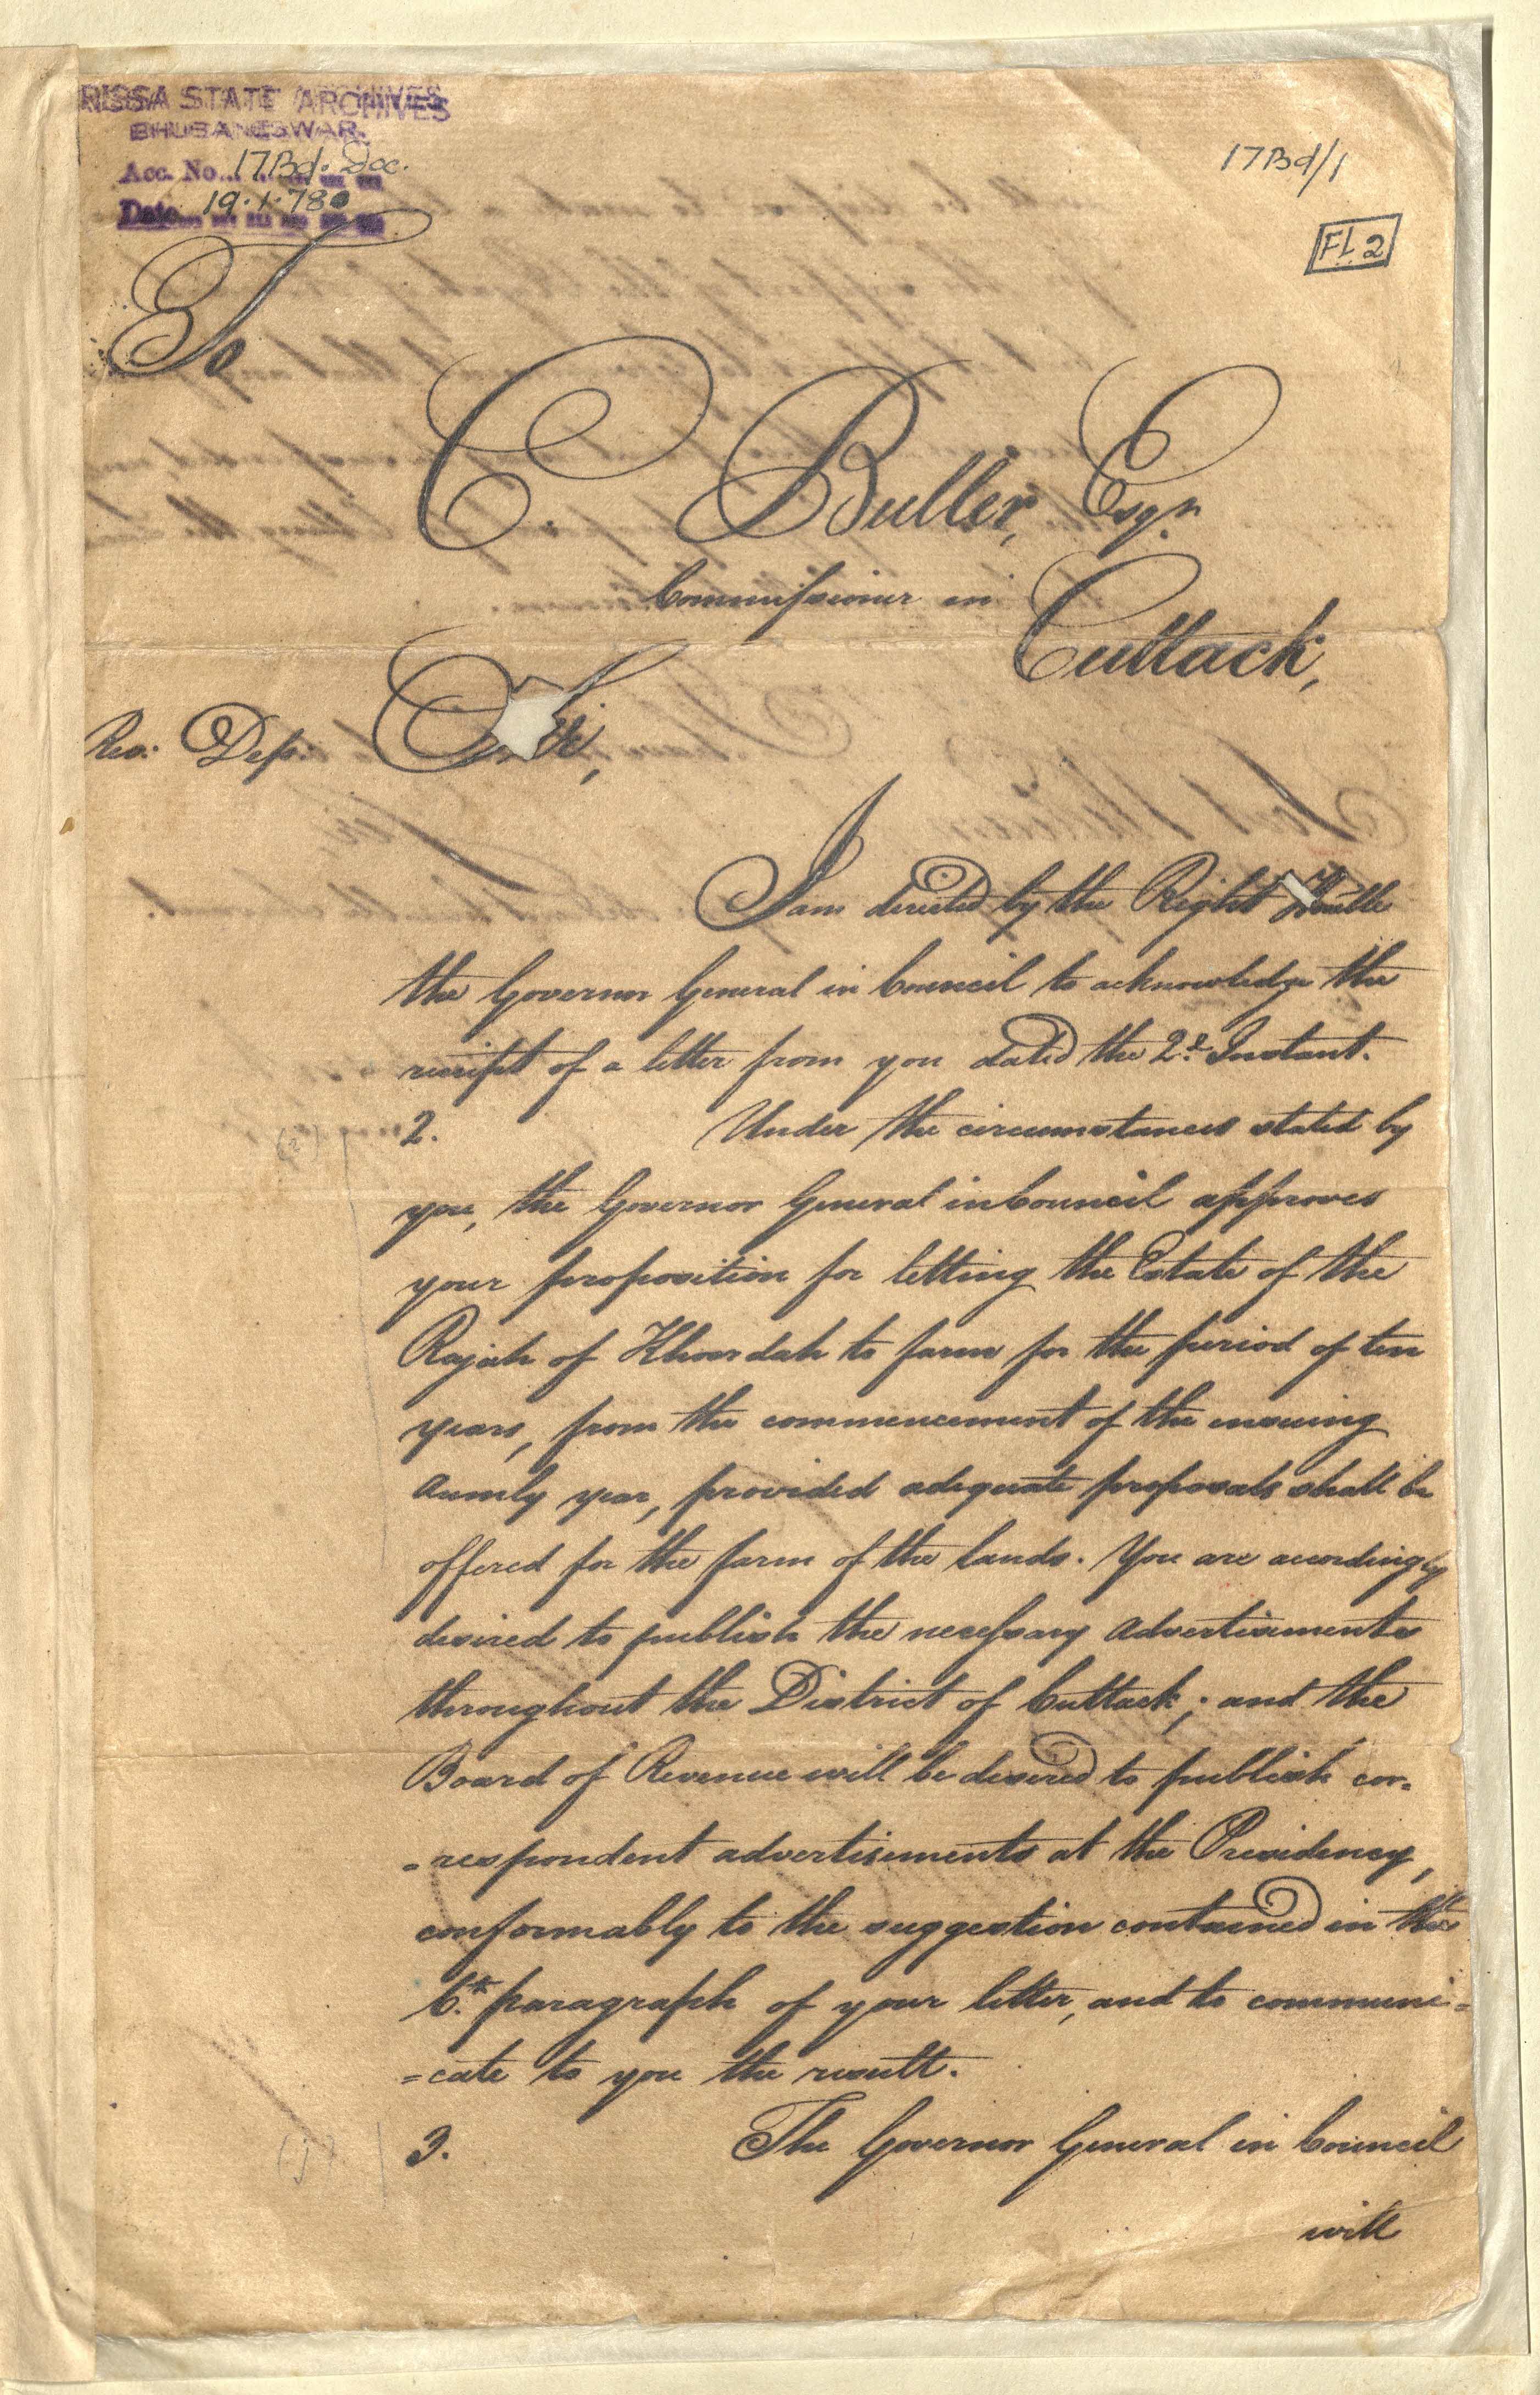 RISSA STATE ARCHIVES
BHUBANESWAR.
Acc. No. 17Bd. Doc.
Date 19.1.78
17Bd/1
Fl 2
To
C. Buller, Esqr.
Commissioner in
Cuttack,
Rev: Dep:
I am directed by the Right Hon'ble
the Governor General in Council to acknowledge the
receipt of a letter from you dated the 2d. Instant.
(2)
2. Under the circumstances stated by
you, the Governor General in Council approves
your proposition for letting the Estate of the
Rajah of Khoordah to farm for the period of ten
years, from the commencement of the ensuing
aumly year, provided adequate proposals shall be
offered for the farm of the lands. You are accordingly
desired to publish the necessary advertisements
throughout the District of Cuttack; and the
Board of Revenue will be desired to publish cor=
=respondent advertisements at the Presidency,
conformably to the suggestion contained in the
6th. paragraph of your letter, and to communi=
=cate to you the result.
3. The Governor General in Council
will